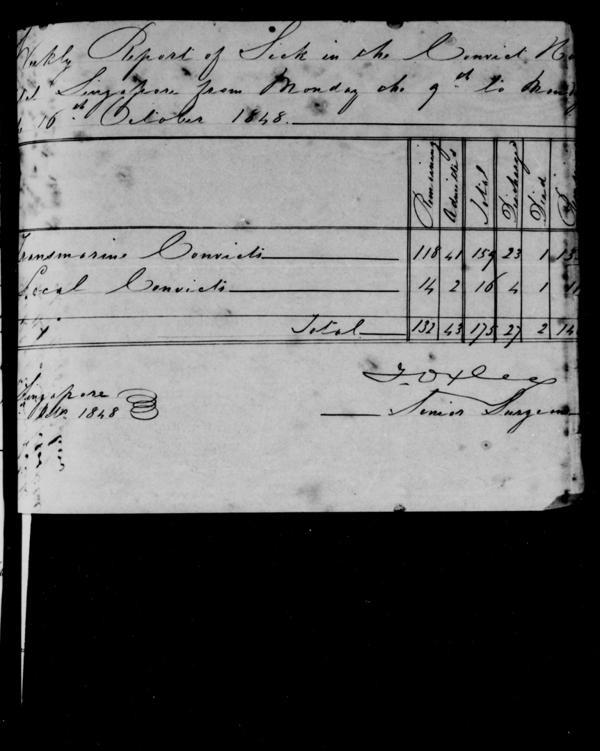 Weekly Report of Sick in the Convict Ho
Singapore from Monday the 9th to Mond
16th October 1848.
Remaining Admitted Total Discharged Died
Transmarine Convicts 118 41 159 23 1 13
Local Convicts 14 2 16 4 1 11
Total 132 43 175 27 2 14
Singapore
1848
T. Oxley
Senior Surgeon